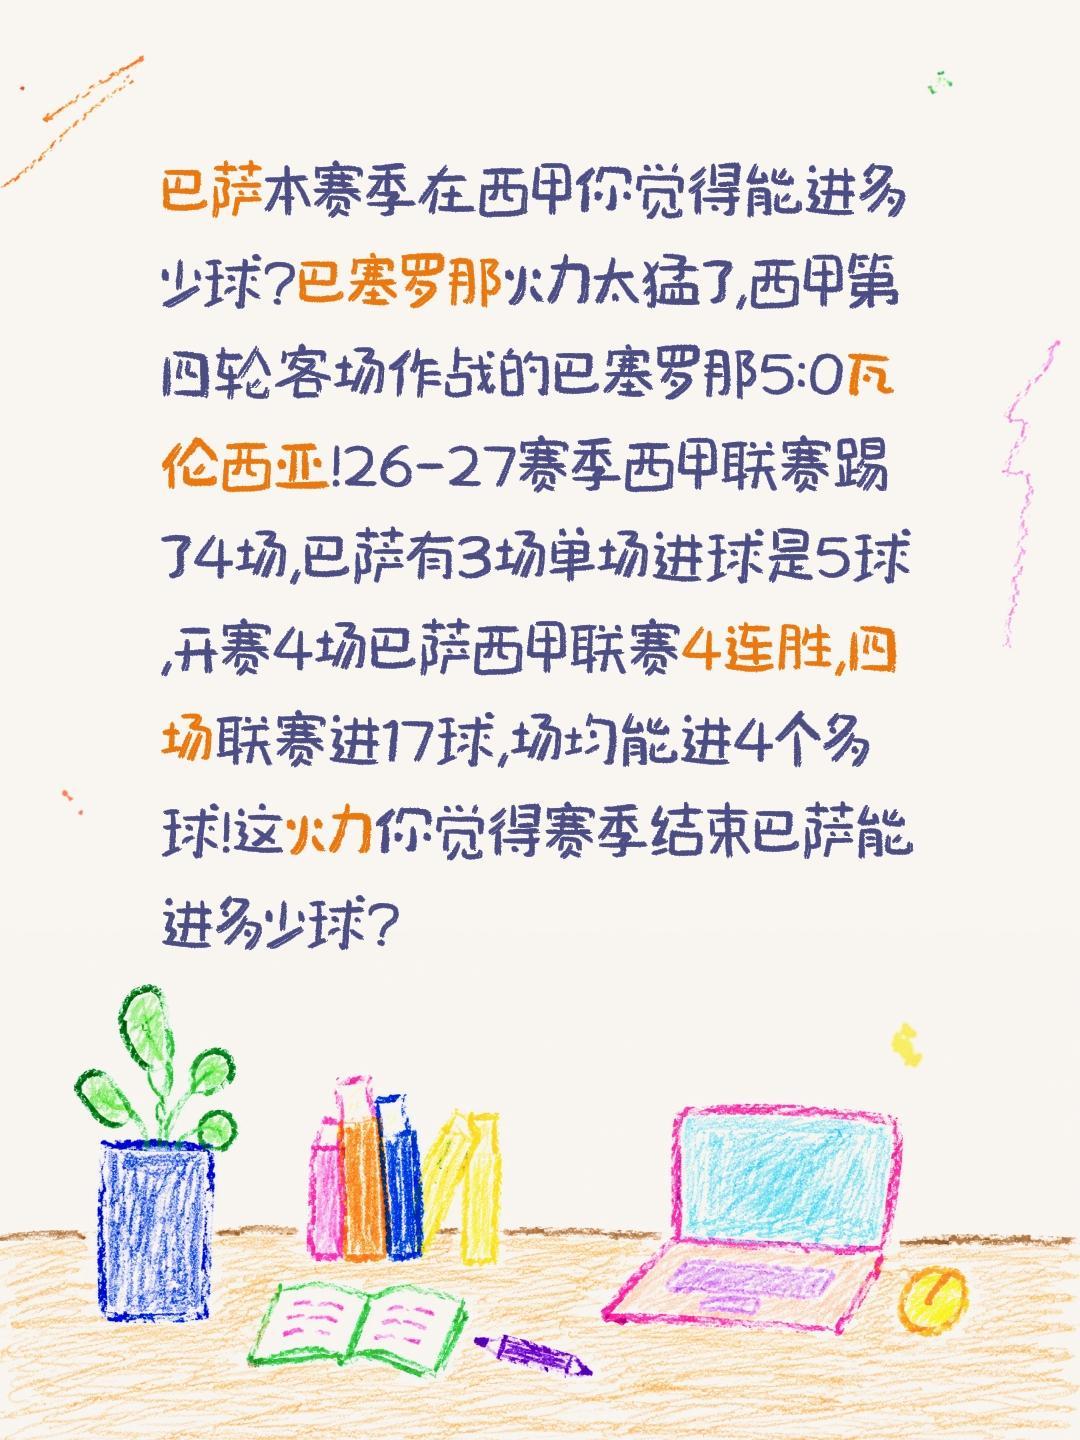 巴萨本赛季在西甲你觉得能进多
少球?巴塞罗那火力太猛了,西甲第
四轮客场作战的巴塞罗那5:0瓦
伦西亚!26-27赛季西甲联赛踢
了4场,巴萨有3场单场进球是5球
,开赛4场巴萨西甲联赛4连胜,四
场联赛进17球,场均能进4个多
球!这火力你觉得赛季结束巴萨能
进多少球?